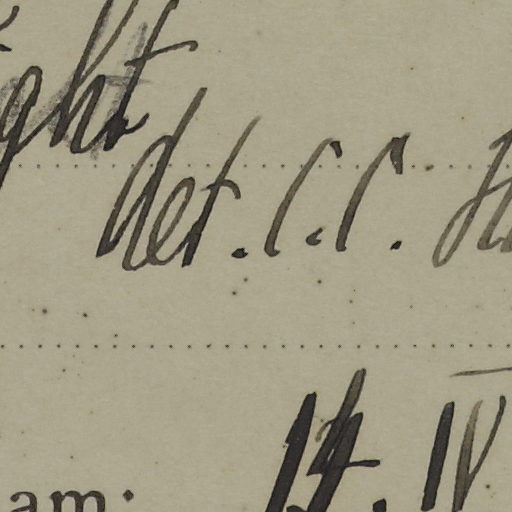 ght
det. C. C. H
am: 14. IV